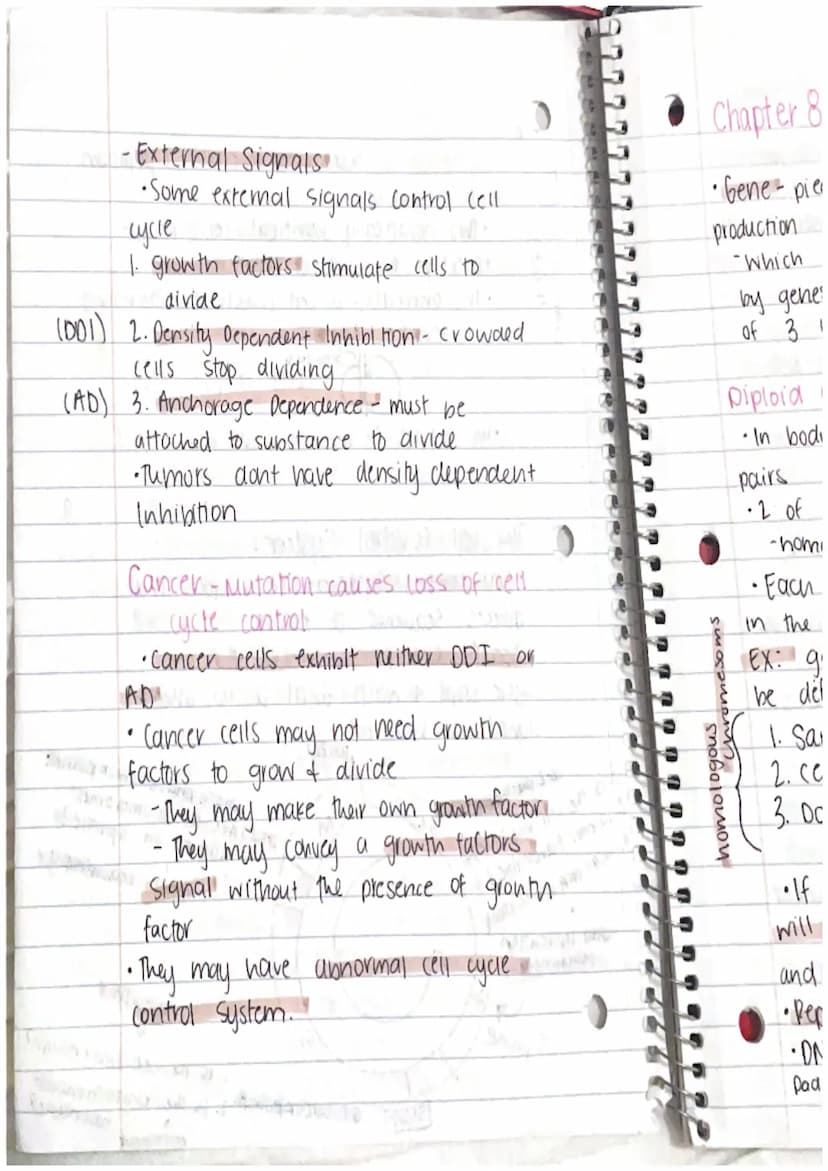 - External Signals
• Some external signals control cell
cycle
1. growth factors stimulate cells to
divide
(DDI) 2. Density Dependent Inhibition - crowded
cells stop dividing
(AD) 3. Anchorage Dependence - must be
attached to substance to divide
• Tumors dont have density dependent
Inhibition
Cancer - Mutation causes loss of cell
cycle control
• cancer cells exhibit neither DDI or
AD
• Cancer cells may not need growth
factors to grow & divide
- They may make their own growth factor
- They may convey a growth factors
signal without the presence of growth
factor
• They may have abnormal cell cycle
control system.
Chapter 8
• Gene - pie
production
- which
by gene
of 3
Diploid
• In bod
pairs
• 2 of
- hom
• Each
in the
EX: g
be de
homologous
chromosoms
1. Sa
2. ce
3. Do
• If
will
and
• Rep
• DN